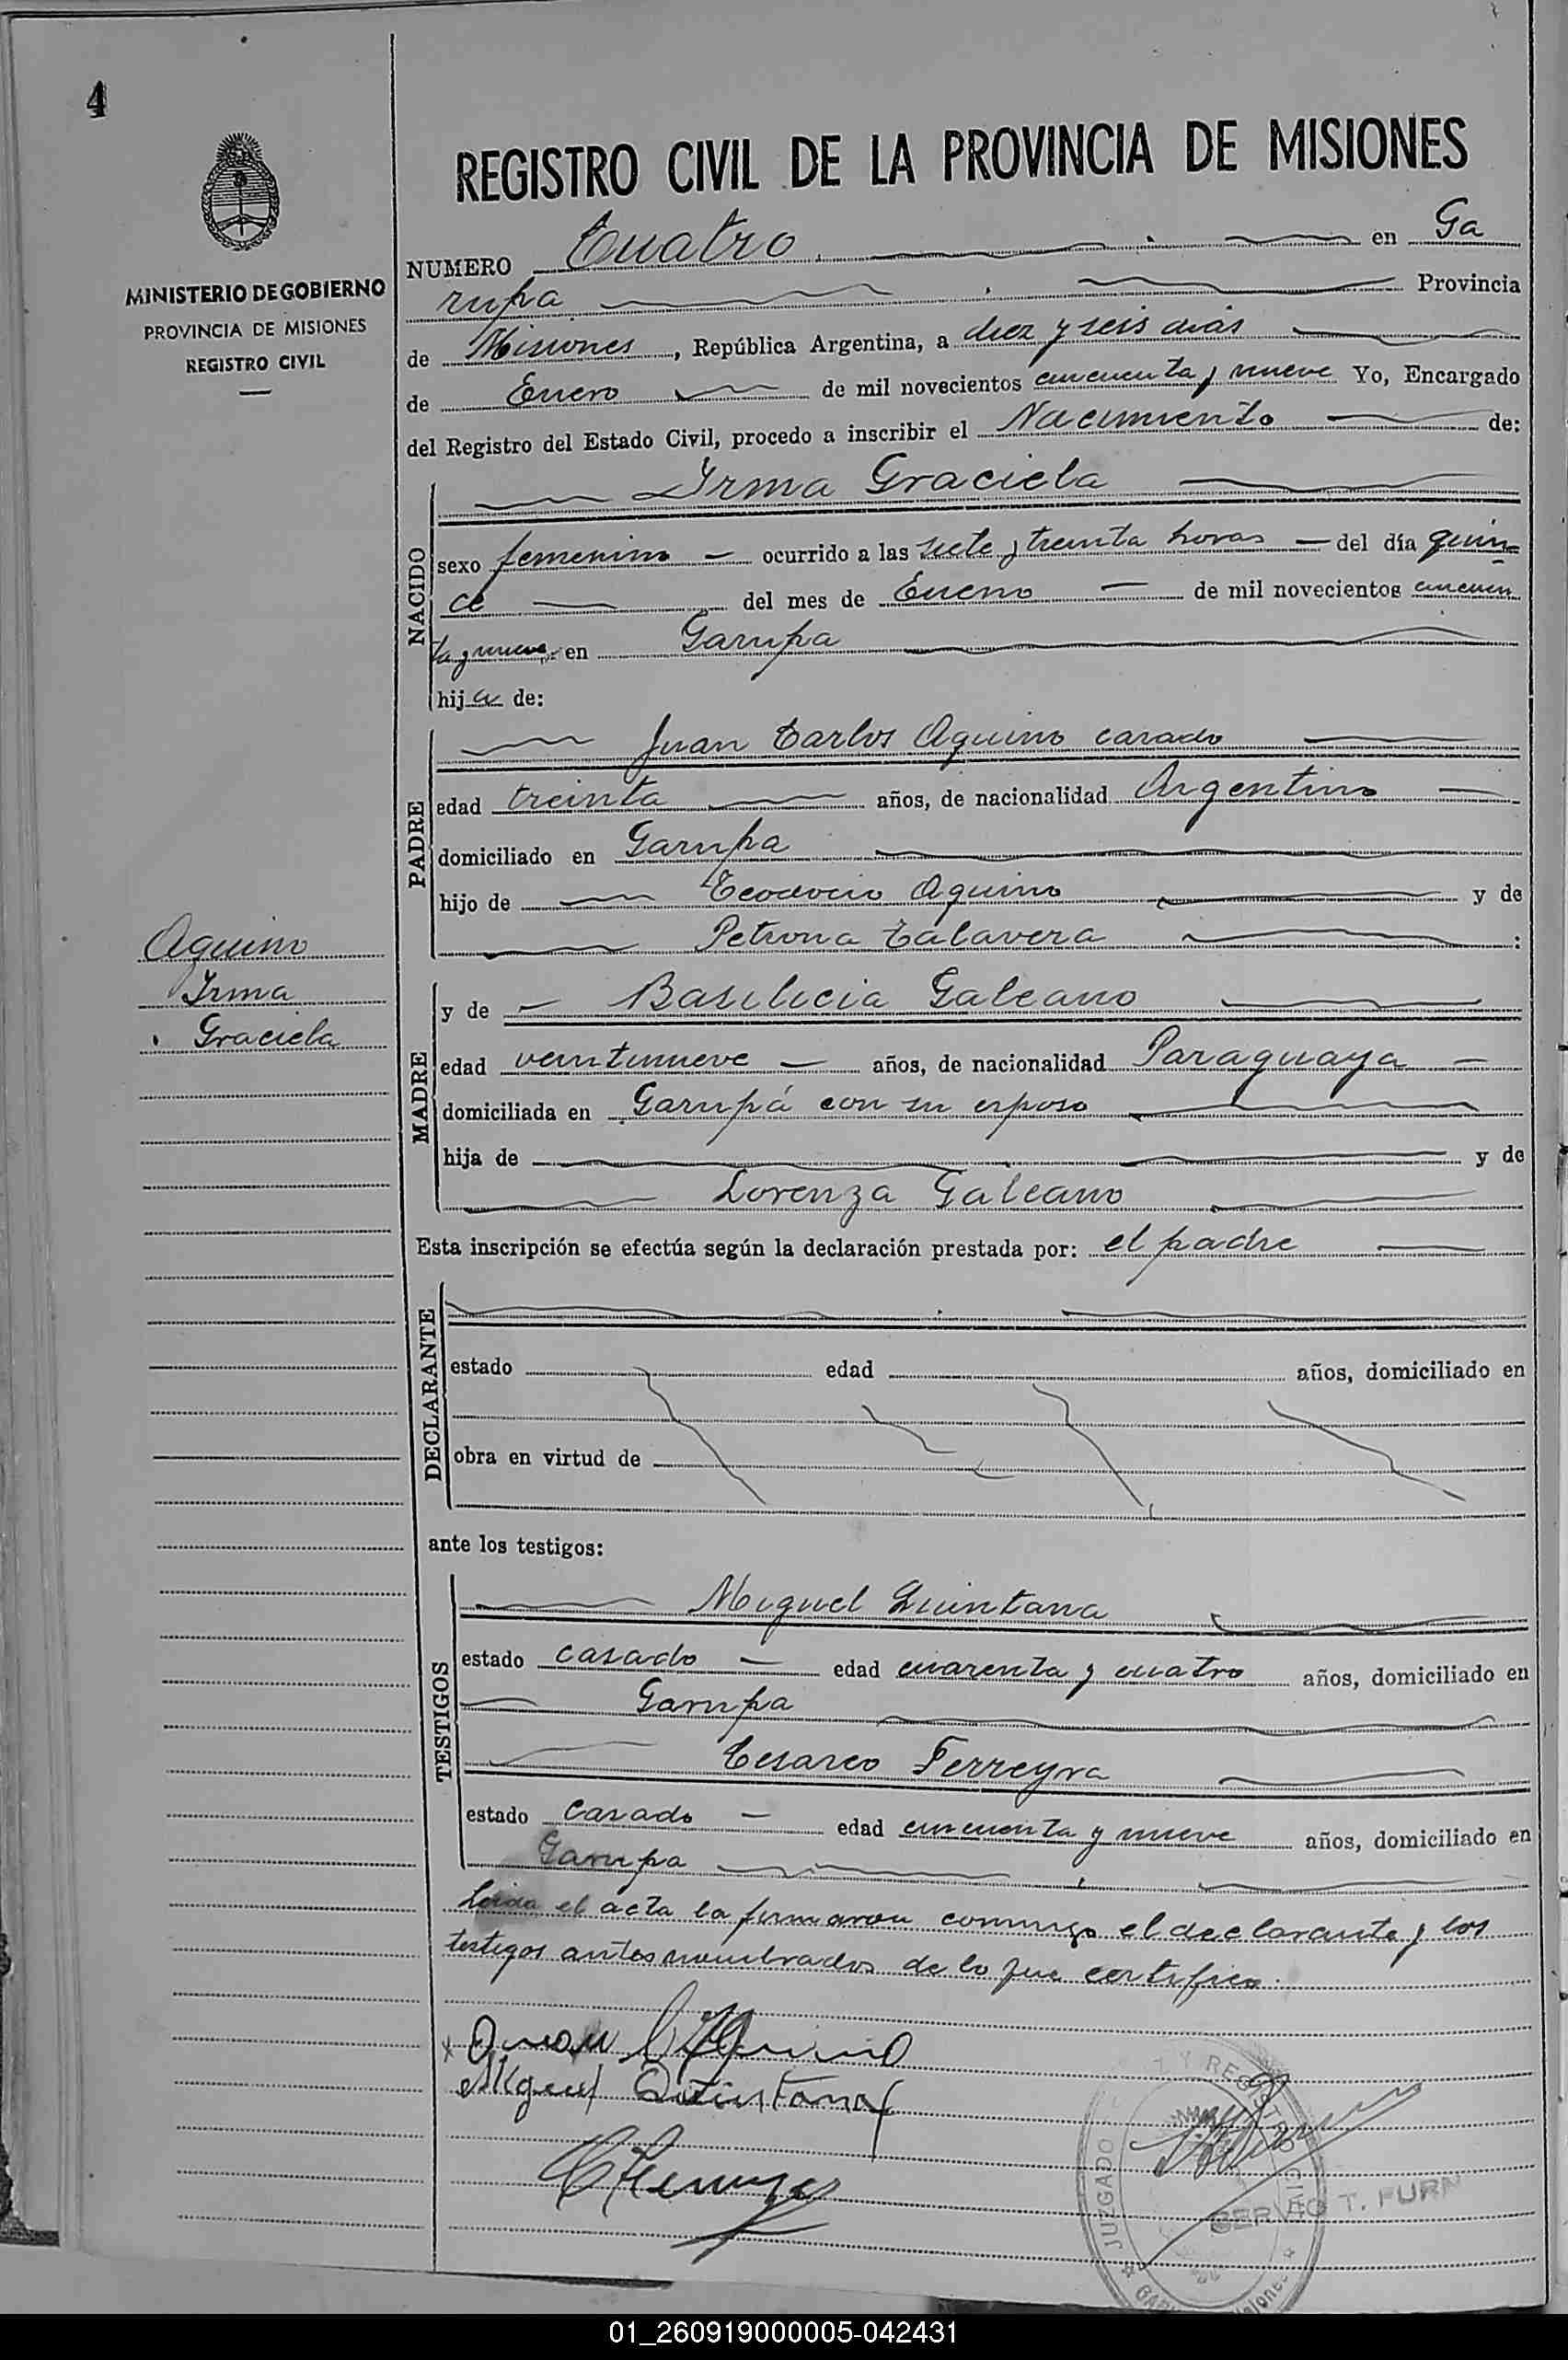 4
MINISTERIO DE GOBIERNO
PROVINCIA DE MISIONES
REGISTRO CIVIL
REGISTRO CIVIL DE LA PROVINCIA DE MISIONES
NUMERO Cuatro en Ga
rupa Provincia
de Misiones, República Argentina, a diez y seis dias
de Enero de mil novecientos cincuenta y nueve Yo, Encargado
del Registro del Estado Civil, procedo a inscribir el Nacimiento de:
NACIDO
Irma Graciela
sexo femenino — ocurrido a las siete y treinta horas — del día quin-
ce del mes de Enero — de mil novecientos cincuen
ta y nueve en Garupa
hija de:
PADRE
Juan Carlos Aquino casado
edad treinta años, de nacionalidad Argentino —
domiciliado en Garupa
hijo de Teodocio Aquino y de
Petrona Talavera :
Aquino
Irma
Graciela
MADRE
y de — Basilicia Galeano
edad veintinueve — años, de nacionalidad Paraguaya —
domiciliada en Garupá con su esposo
hija de y de
Lorenza Galeano
Esta inscripción se efectúa según la declaración prestada por: el padre
DECLARANTE
estado edad años, domiciliado en
obra en virtud de
ante los testigos:
TESTIGOS
Miguel Quintana
estado casado — edad cuarenta y cuatro años, domiciliado en
Garupa
Cesareo Ferreyra
estado Casado — edad cincuenta y nueve años, domiciliado en
Garupa
Leida el acta la firmaron conmigo el declarante y los
testigos antes nombrados de lo que certifico.
x Juan C Aquino
Miguel Quintana
JUZGADO Z Y REGISTRO CIVIL
T. FURN
01_260919000005-042431